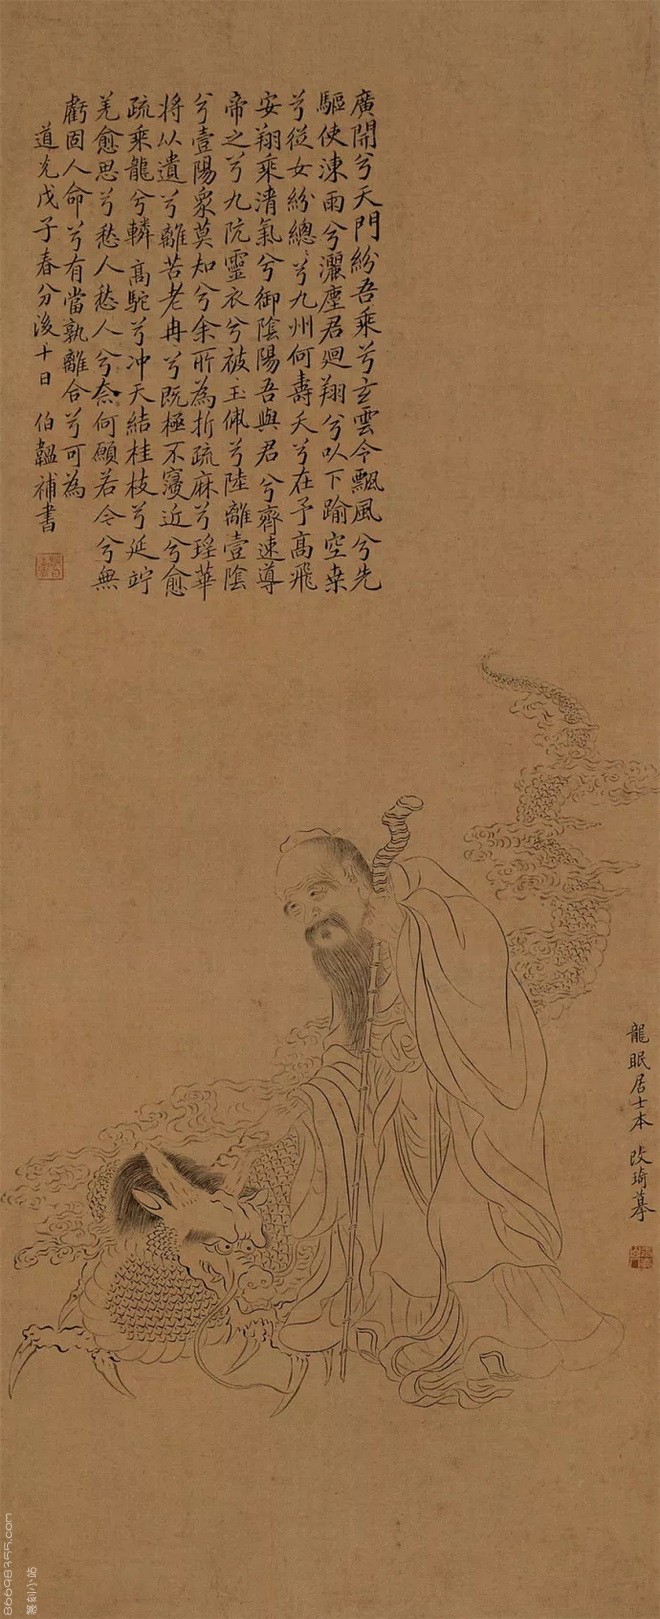 廣開兮天門紛吾乘兮玄雲令飄風兮先
驅使涷雨兮灑塵君迴翔兮㠯下踰空桒
兮從女紛總〻兮九州何壽夭兮在予高飛
安翔乘清氣兮御陰陽吾與君兮齊速導
帝之兮九阬靈衣兮被玉佩兮陸離壹陰
兮壹陽衆莫知兮余所為折疏麻兮瑤華
将以遺兮離苦老冉兮既極不寖近兮愈
疏乘龍兮轔〻高駝兮冲天結桂枝兮延竚
羌愈思兮愁人愁人兮奈何願若今兮無
虧固人命兮有當孰離合兮可為
道光戊子春分後十日 伯韞補書
龍眠居士本 改琦摹
86698355.com
篆刻小站